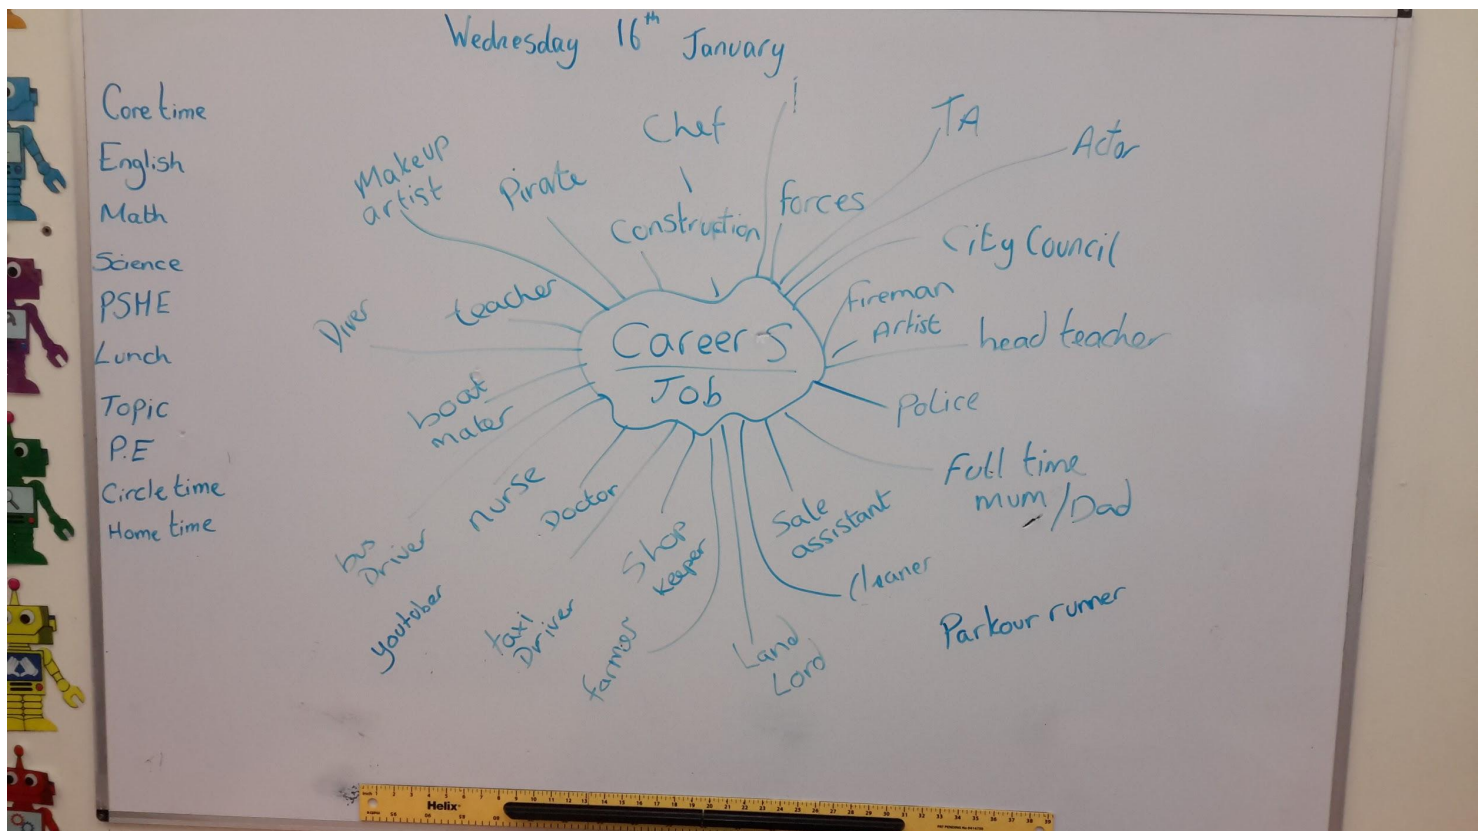 Wednesday 16th January
Core time
English
Math
Science
PSHE
Lunch
Topic
P.E
Circle time
Home time
Careers
Job
Makeup
artist
Pirate
Chef
Construction
forces
TA
Actor
City Council
fireman
Artist
head teacher
Police
Full time
mum/Dad
Sale
assistant
Cleaner
Parkour runner
Land
Lord
farmer
Shop
keeper
taxi
Driver
Doctor
nurse
youtuber
bus
Driver
boat
mater
Diver
teacher
Helix